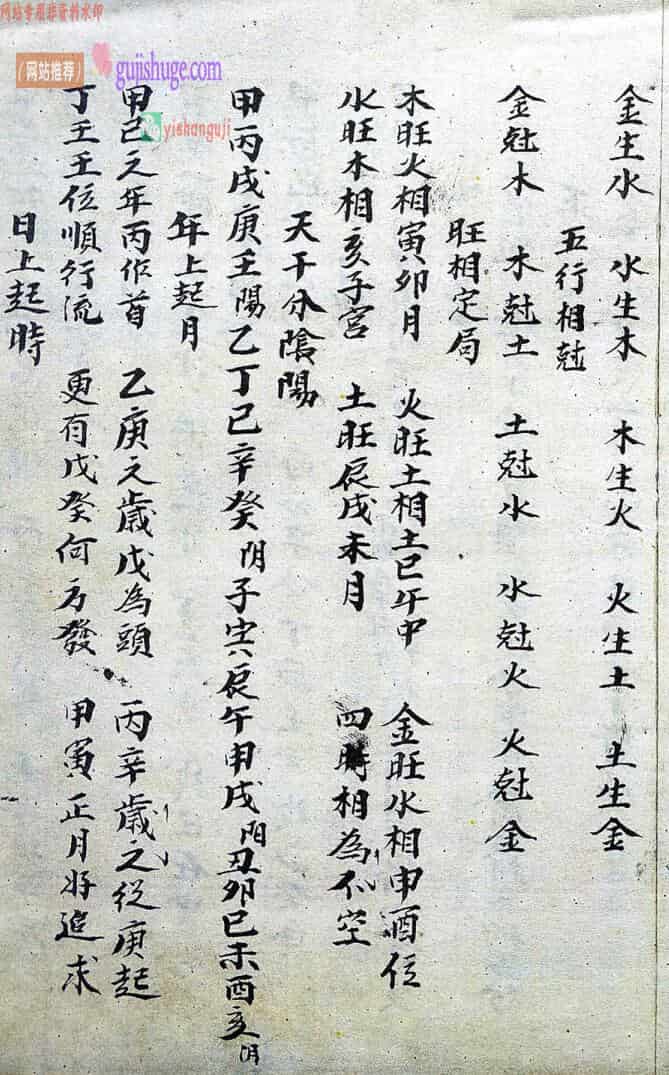 金生水 水生木 木生火 火生土 土生金
五行相尅
金尅木 木尅土 土尅水 水尅火 火尅金
旺相定局
木旺火相寅卯月 火旺土相土巳午中 金旺水相申酉位
水旺木相亥子宮 土旺辰戌未月 四時相為不空
天干分陰陽
甲丙戊庚壬陽乙丁己辛癸阴子寅辰午申戌阳丑卯巳未酉亥阴
年上起月
甲己之年丙作首 乙庚之歲戊為頭 丙辛歲之從庚起
丁壬壬位順行流 更有戊癸何方發 甲寅正月好追求
日上起時
网站专属非资料水印
(网站推荐)
gujishuge.com
yishanguji